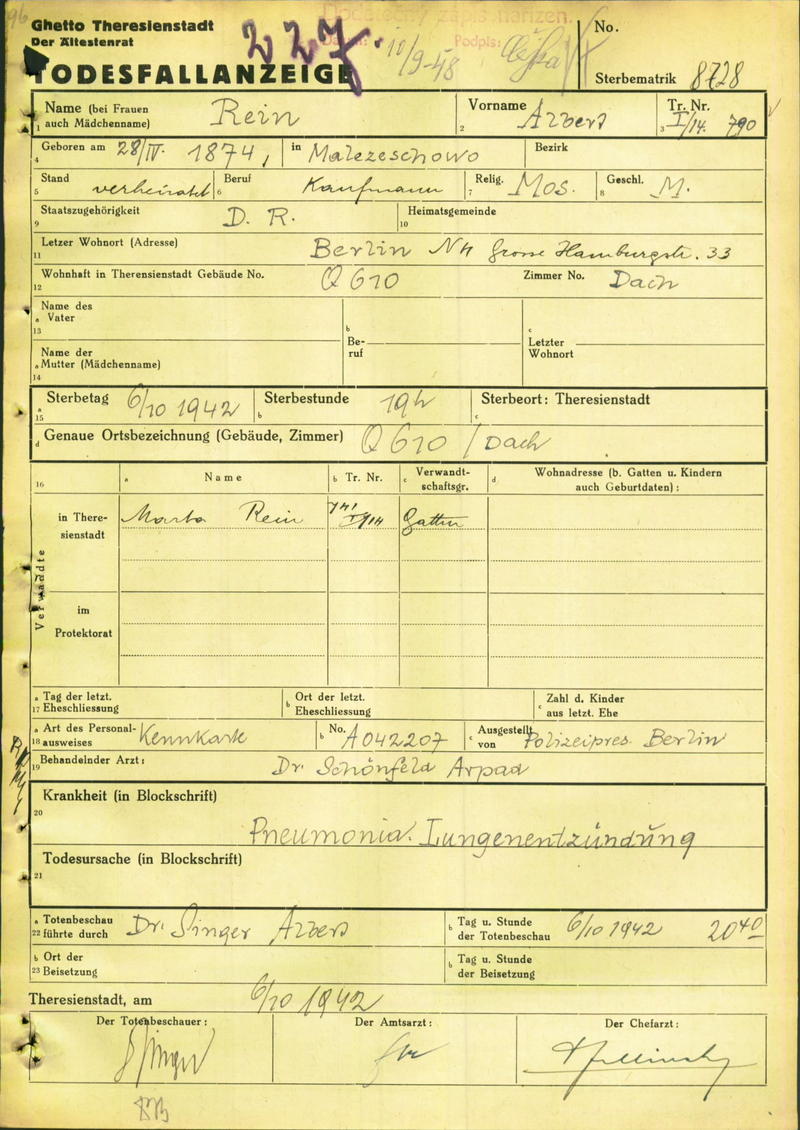 Ghetto Theresienstadt
Der Ältestenrat
TODESFALLANZEIGE
227
Dodatečný zápis nařízen.
Podpis:
10/9-48
No.
Sterbematrik 8728
Name (bei Frauen auch Mädchenname) Rein
1
Vorname Albert
2
Tr. Nr. I/14. 790
3
Geboren am 28/IV. 1874, in Malezeschowo Bezirk
4
Stand verheiratet Beruf Kaufmann Relig. Mos. Geschl. M.
5 6 7 8
Staatszugehörigkeit D. R. Heimatsgemeinde
9 10
Letzer Wohnort (Adresse) Berlin N4 Grosse Hamburgstr. 33
11
Wohnhaft in Therensienstadt Gebäude No. Q 610 Zimmer No. Dach
12
Name des
a Vater
13
b Beruf
c Letzter Wohnort
Name der
a Mutter (Mädchenname)
14
Sterbetag 6/10 1942 Sterbestunde 19h Sterbeort: Theresienstadt
a 15 b c
d Genaue Ortsbezeichnung (Gebäude, Zimmer) Q 610 / Dach
16 a Name b Tr. Nr. c Verwandtschaftsgr. d Wohnadresse (b. Gatten u. Kindern auch Geburtdaten):
Verwandte
in Theresienstadt Marta Rein 791 I/14 Gattin
im Protektorat
a Tag der letzt. b Ort der letzt. c Zahl d. Kinder
17 Eheschliessung Eheschliessung aus letzt. Ehe
a Art des Personal- Kennkarte b No. A042207 c Ausgestellt Polizeipres. Berlin
18 ausweises von
Behandelnder Arzt: Dr. Schönfeld Arpad
19
Krankheit (in Blockschrift)
20
Pneumonia. Lungenentzündung
Todesursache (in Blockschrift)
21
a Totenbeschau Dr. Singer Albert b Tag u. Stunde 6/10 1942 20 40
22 führte durch der Totenbeschau
b Ort der b Tag u. Stunde
23 Beisetzung der Beisetzung
Theresienstadt, am 6/10 1942
Der Totenbeschauer: Der Amtsarzt: Der Chefarzt: